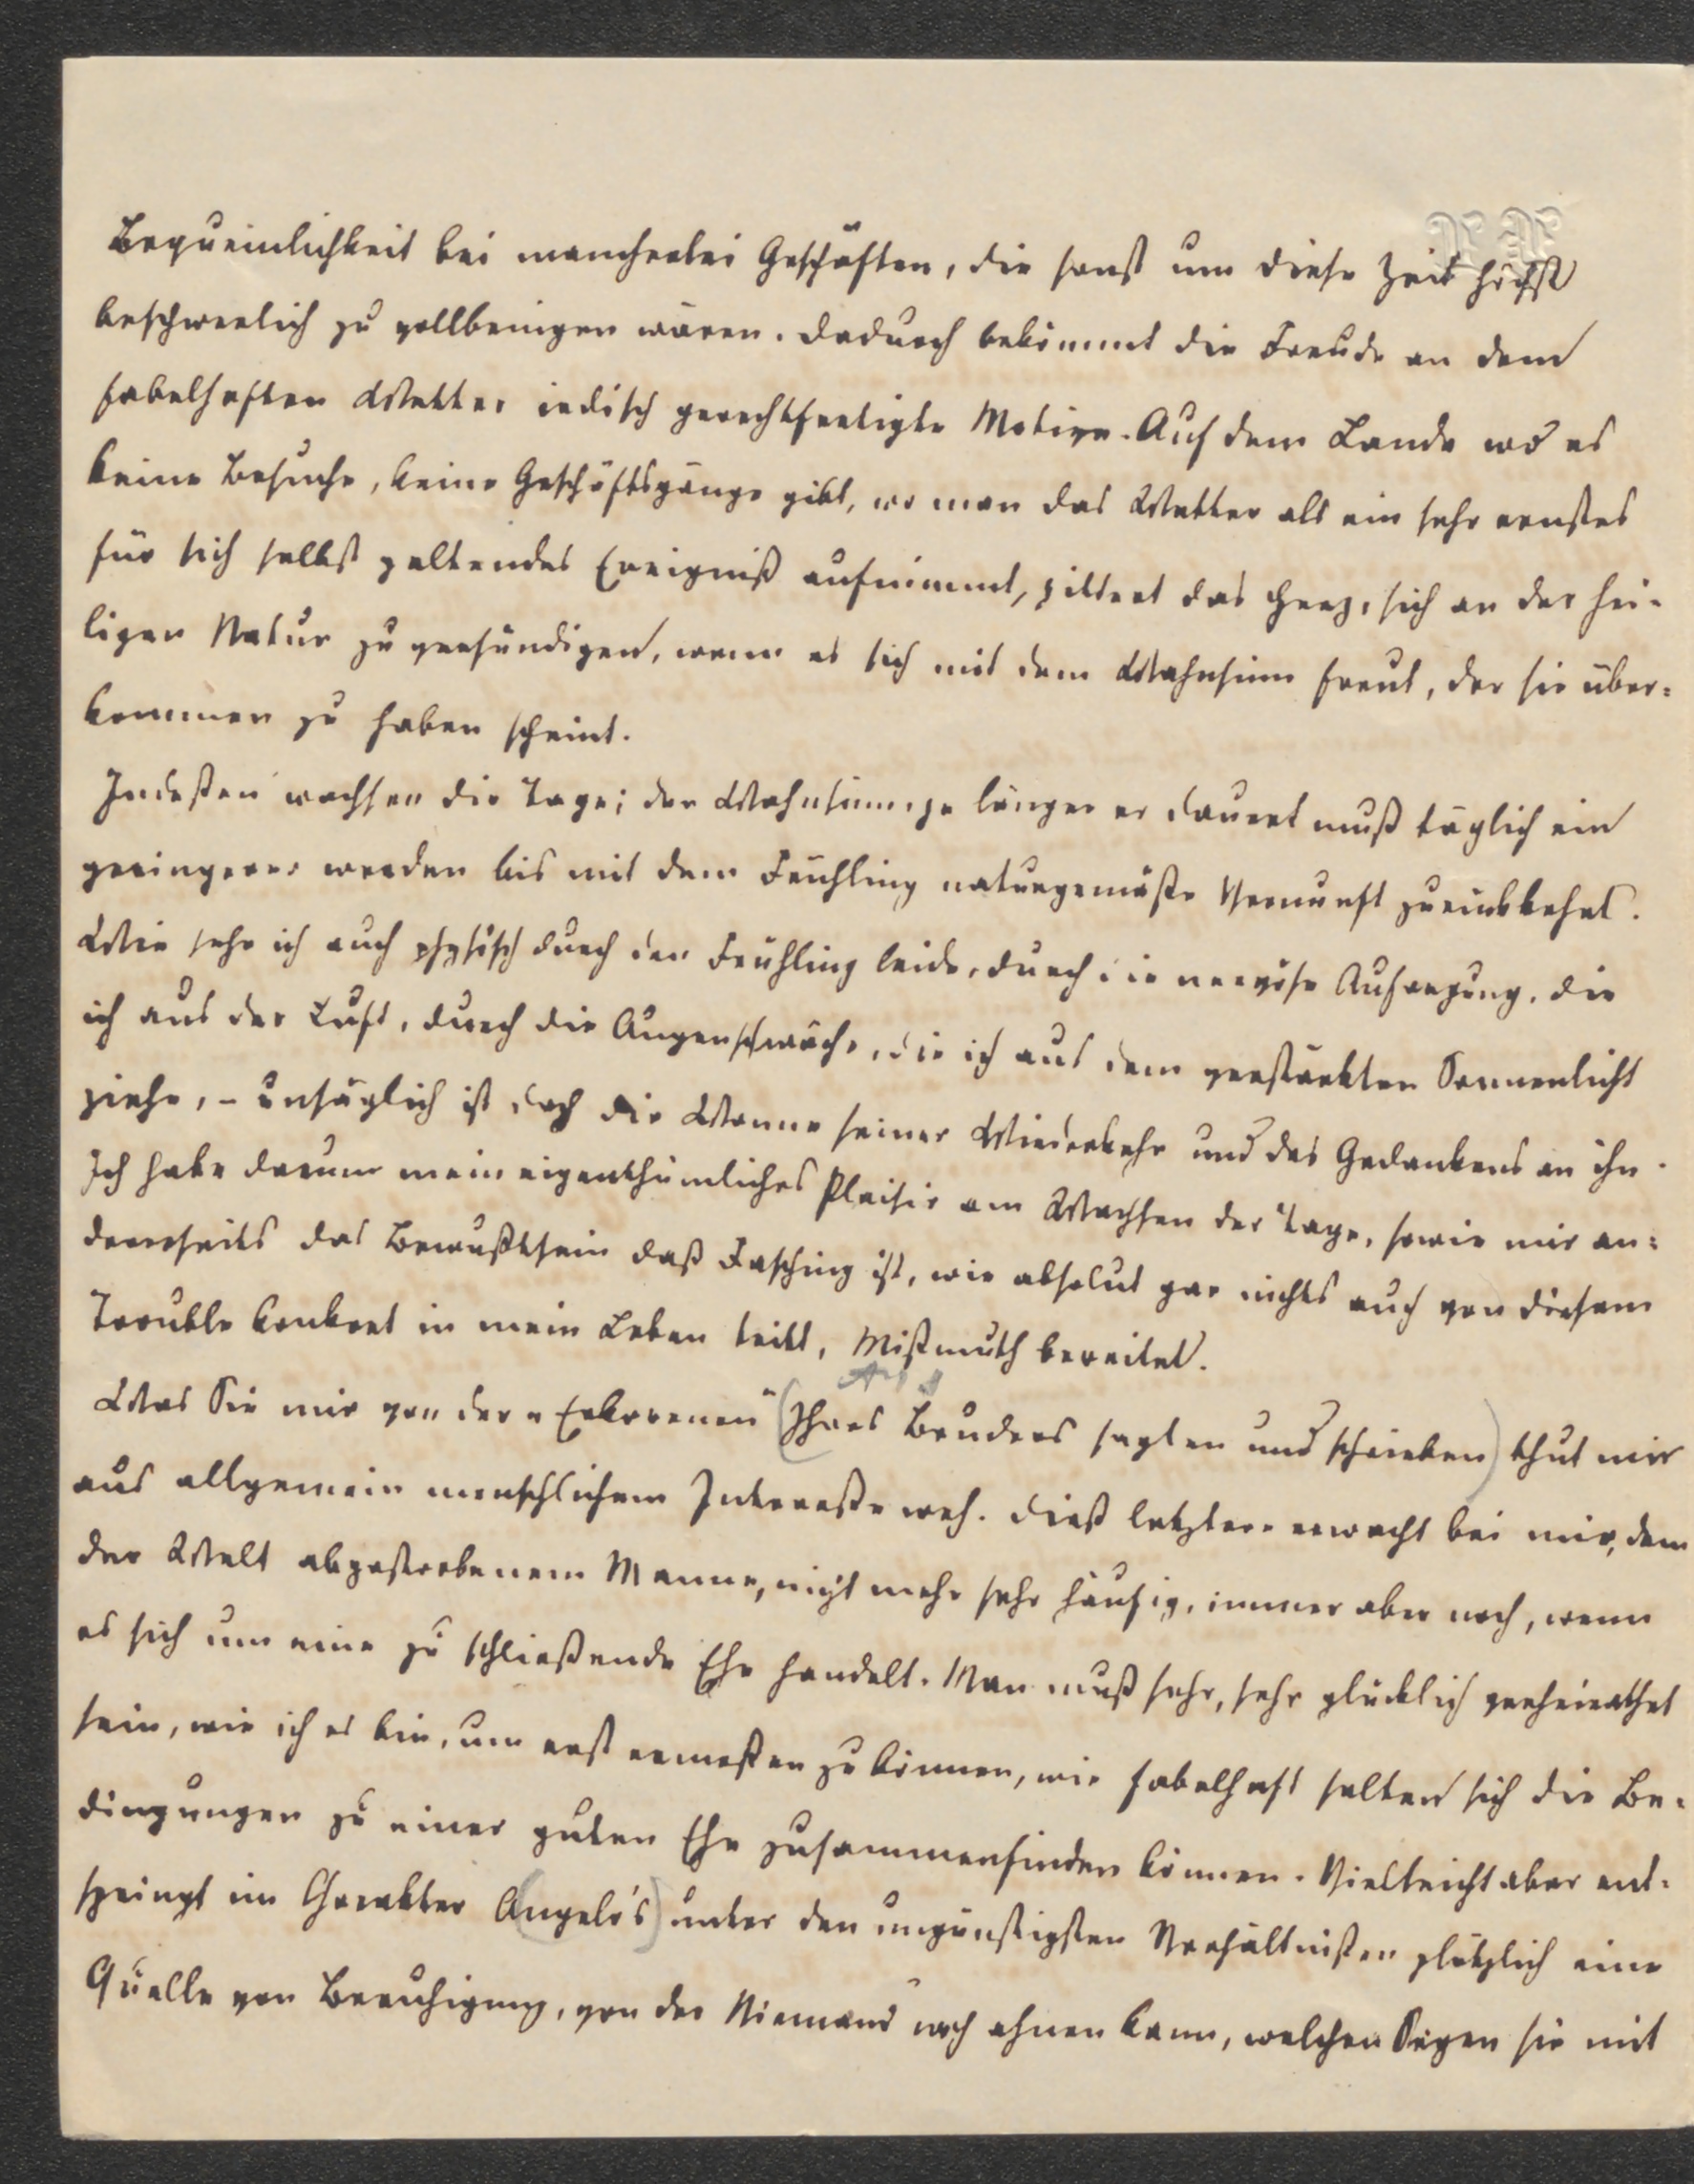 Bequeimlichkeit bei mancherlei Geschäften, die sonst um diese Zeit höchst
beschwerlich zu vollbringen wären. Dadurch bekömmt die Freude an dem
fabelhaften Wetter irdisch gerechtfertigte Motive. Auf dem Lande wo es
keine Besuche, keine Geschäftsgänge gibt, wo man das Wetter als ein sehr ernstes
für sich selbst geltendes Ereigniß aufnimmt, zittert das Herz, sich an der hei-
ligen Natur zu versündigen, wenn es sich mit dem Wahnsinn freut, der sie über=
kommen zu haben scheint.
Indeßen wachsen die Tage; der Wahnsinn, je länger er dauert muß täglich ein
geringerer werden bis mit dem Frühling naturgemäße Vernunft zurückkehrt.
Wie sehr ich auch physisch durch den Frühling leide, durch die nervöse Aufregung, die
ich aus der Luft, durch die Augenschwäche, die ich aus dem verstärkten Sonnenlicht
ziehe, – unsäglich ist doch die Wonne seiner Wiederkehr und des Gedankens an ihn.
Ich habe darum mein eigenthümliches Plaisir am Wachsen der Tage, sowie mir an=
dererseits das Bewußtsein daß Fasching ist, wie absolut gar nichts auch von diesem
Trouble konkret in mein Leben tritt, Mißmuth bereitet.
Was Sie mir von der „Erkorenen" (Ihres Bruders sagten und schrieben) thut mir
aus allgemein menschlichem Intereße weh. Dieß letztere erwacht bei mir, dem
der Welt abgestorbenem Manne, nicht mehr sehr häufig, immer aber noch, wenn
es sich um eine zu schließende Ehe handelt. Man muß sehr, sehr glücklich verheirathet
sein, wie ich es bin, um erst ermeßen zu können, wie fabelhaft selten sich die Be-
dingungen zu einer guten Ehe zusammenfinden können. Vielleicht aber ent-
springt im Charakter (Angelo's) unter den ungünstigsten Verhältnißen plötzlich eine
Quelle von Beruhigung, von der Niemand noch ahnen kann, welchen Segen sie mit